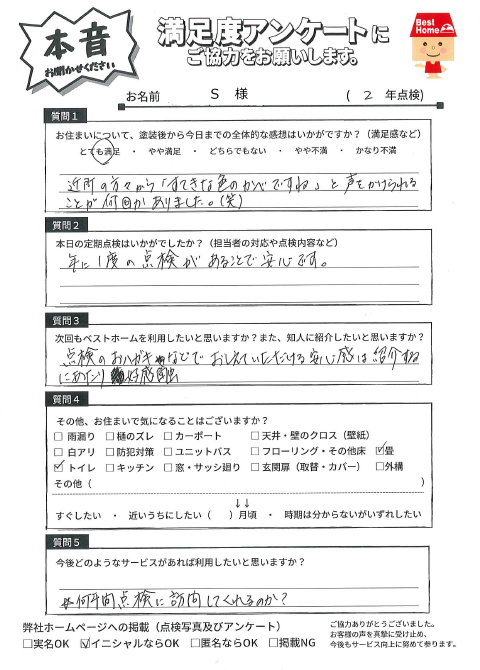 本音
お聞かせください
満足度アンケートに
ご協力をお願いします。
Best
Home
お名前 S 様 ( 2 年点検)
質問1
お住まいについて、塗装後から今日までの全体的な感想はいかがですか？（満足感など）
とても満足 ・ やや満足 ・ どちらでもない ・ やや不満 ・ かなり不満
近所の方々から「すてきな色のかべですね」と声をかけられる
ことが何回かありました。(笑)
質問2
本日の定期点検はいかがでしたか？（担当者の対応や点検内容など）
年に1度の点検があることで安心です。
質問3
次回もベストホームを利用したいと思いますか？また、知人に紹介したいと思いますか？
点検のおハガキなどでおしえていただける安心感は紹介する
にあたり好感
質問4
その他、お住まいで気になることはございますか？
□ 雨漏り □ 樋のズレ □ カーポート □ 天井・壁のクロス（壁紙）
□ 白アリ □ 防犯対策 □ ユニットバス □ フローリング・その他床 ☑ 畳
☑ トイレ □ キッチン □ 窓・サッシ廻り □ 玄関扉（取替・カバー） □ 外構
その他（ ）
↓↓
すぐしたい ・ 近いうちにしたい（ ）月頃 ・ 時期は分からないがいずれしたい
質問5
今後どのようなサービスがあれば利用したいと思いますか？
何年間点検に訪問してくれるのか？
弊社ホームページへの掲載（点検写真及びアンケート）
□実名OK ☑イニシャルならOK □匿名ならOK □掲載NG
ご協力ありがとうございました。
お客様の声を真摯に受け止め、
今後もサービス向上に努めて参ります。